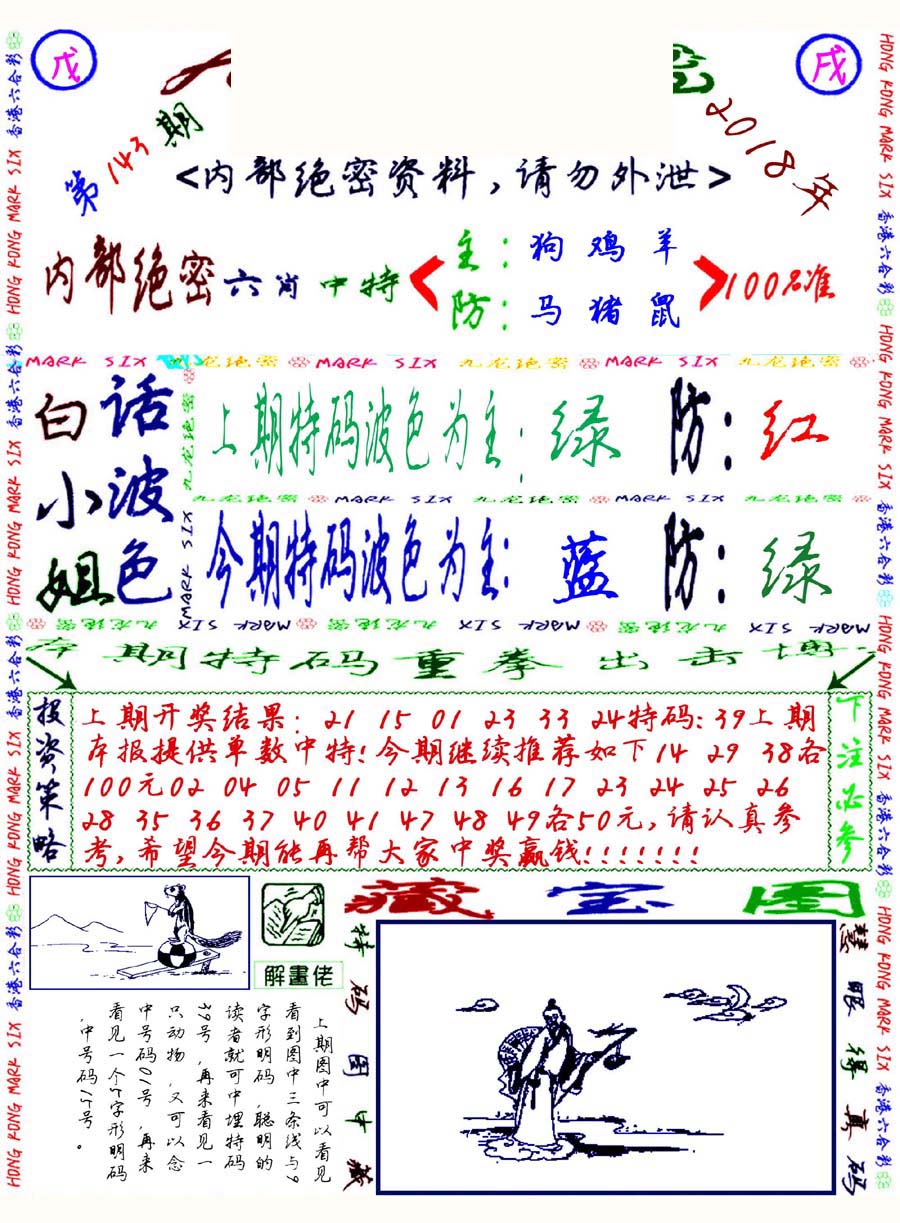 戊
戌
第143期
2018年
<内部绝密资料,请勿外泄>
内部绝密六肖中特
主:狗 鸡 羊
防:马 猪 鼠
100%准
MARK SIX 九龙绝密 MARK SIX 九龙绝密 MARK SIX 九龙绝密
白话
小波
姐色
九龙绝密 MARK SIX
上期特码波色为主:绿 防:红
九龙绝密 MARK SIX 九龙绝密 MARK SIX 九龙绝密
今期特码波色为主:蓝 防:绿
MARK SIX 九龙绝密 MARK SIX 九龙绝密 MARK SIX 九龙绝密
本期特码重拳出击博
投资策略
上期开奖结果: 21 15 01 23 33 24特码:39上期
本报提供单数中特!今期继续推荐如下14 29 38各
100元02 04 05 11 12 13 16 17 23 24 25 26
28 35 36 37 40 41 47 48 49各50元,请认真参
考,希望今期能再帮大家中奖赢钱!!!!!!!
下注必参
解畫佬
藏宝图
上期图中可以看见
看到图中三条线与9
字形明码,聪明的
读者就可中埋特码
39号,再来看见一
只动物,又可以念
中号码01号,再来
看见一个5字形明码
,中号码15号。
特码图中藏
慧眼得真码
香港六合彩 HONG KONG MARK SIX 香港六合彩 HONG KONG MARK SIX 香港六合彩 HONG KONG MARK SIX 香港六合彩 HONG KONG MARK SIX
HONG KONG MARK SIX 香港六合彩 HONG KONG MARK SIX 香港六合彩 HONG KONG MARK SIX 香港六合彩 HONG KONG MARK SIX 香港六合彩